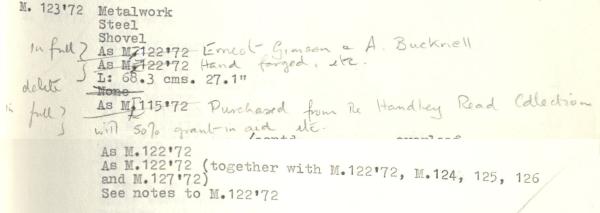 M. 123'72 Metalwork
Steel
Shovel
in full } As M.122'72 Ernest Gimson & A. Bucknell
As M.122'72 Hand forged, etc.
L: 68.3 cms. 27.1"
delete None
in full } As M.115'72 Purchased from the Handley Read Collection
with 50% grant-in aid etc.
As M.122'72
As M.122'72 (together with M.122'72, M.124, 125, 126
and M.127'72)
See notes to M.122'72